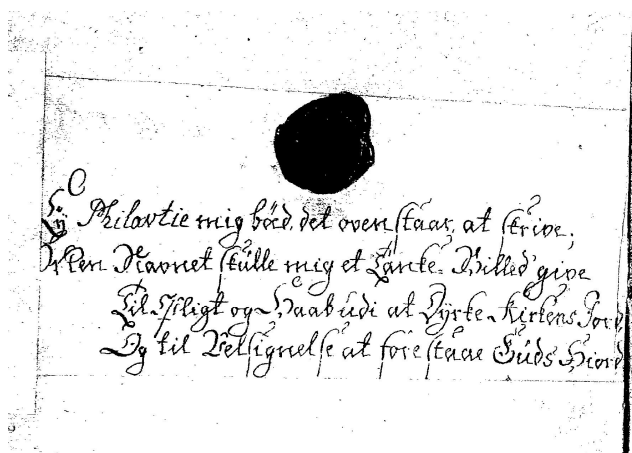 Philavtie mig bød, det ovenstaar, at skrive,
Navnet skulle mig et Tancke-Billed give
Til Pligt og Haab udi at Dyrke Kirkens Jord
Og til Velsignelse at forestaae Guds Hiord